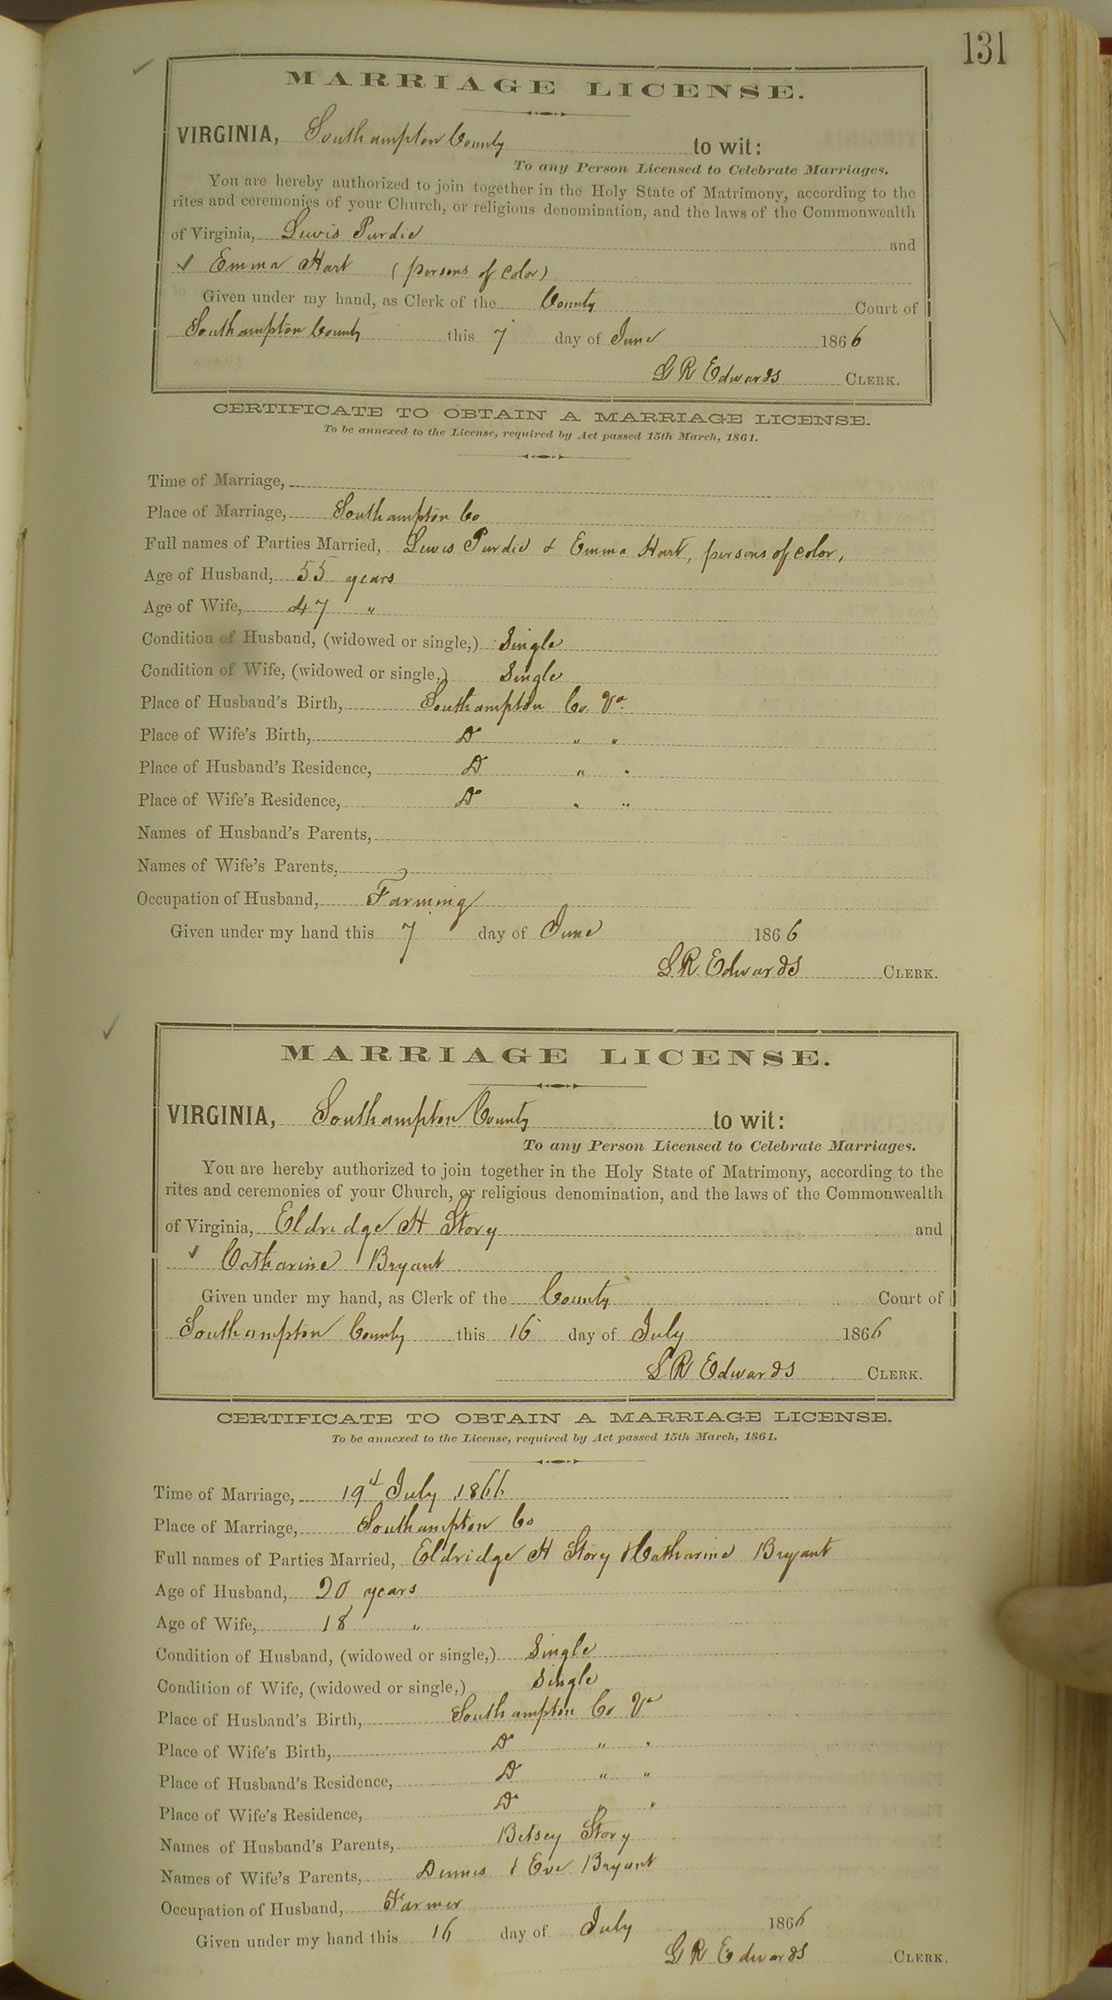 131
MARRIAGE LICENSE.
VIRGINIA, Southampton County to wit:
To any Person Licensed to Celebrate Marriages.
You are hereby authorized to join together in the Holy State of Matrimony, according to the
rites and ceremonies of your Church, or religious denomination, and the laws of the Commonwealth
of Virginia, Lewis Purdie and
Emma Hart (persons of color)
Given under my hand, as Clerk of the County Court of
Southampton County this 7 day of June 1866
L R Edwards CLERK.
CERTIFICATE TO OBTAIN A MARRIAGE LICENSE.
To be annexed to the License, required by Act passed 15th March, 1861.
Time of Marriage,
Place of Marriage, Southampton Co
Full names of Parties Married, Lewis Purdie & Emma Hart, persons of color,
Age of Husband, 55 years
Age of Wife, 47 "
Condition of Husband, (widowed or single,) Single
Condition of Wife, (widowed or single,) Single
Place of Husband's Birth, Southampton Co. Va
Place of Wife's Birth, Do " "
Place of Husband's Residence, Do " "
Place of Wife's Residence, Do " "
Names of Husband's Parents,
Names of Wife's Parents,
Occupation of Husband, Farming
Given under my hand this 7 day of June 1866
L R Edwards CLERK.
MARRIAGE LICENSE.
VIRGINIA, Southampton County to wit:
To any Person Licensed to Celebrate Marriages.
You are hereby authorized to join together in the Holy State of Matrimony, according to the
rites and ceremonies of your Church, or religious denomination, and the laws of the Commonwealth
of Virginia, Eldridge H Story and
Catharine Bryant
Given under my hand, as Clerk of the County Court of
Southampton County this 16 day of July 1866
L R Edwards CLERK.
CERTIFICATE TO OBTAIN A MARRIAGE LICENSE.
To be annexed to the License, required by Act passed 15th March, 1861.
Time of Marriage, 19th July 1866
Place of Marriage, Southampton Co
Full names of Parties Married, Eldridge H Story & Catharine Bryant
Age of Husband, 20 years
Age of Wife, 18 "
Condition of Husband, (widowed or single,) Single
Condition of Wife, (widowed or single,) Single
Place of Husband's Birth, Southampton Co Va
Place of Wife's Birth, Do " "
Place of Husband's Residence, Do " "
Place of Wife's Residence, Do " "
Names of Husband's Parents, Betsey Story
Names of Wife's Parents, Dennis & Eve Bryant
Occupation of Husband, Farmer
Given under my hand this 16 day of July 1866
L R Edwards CLERK.